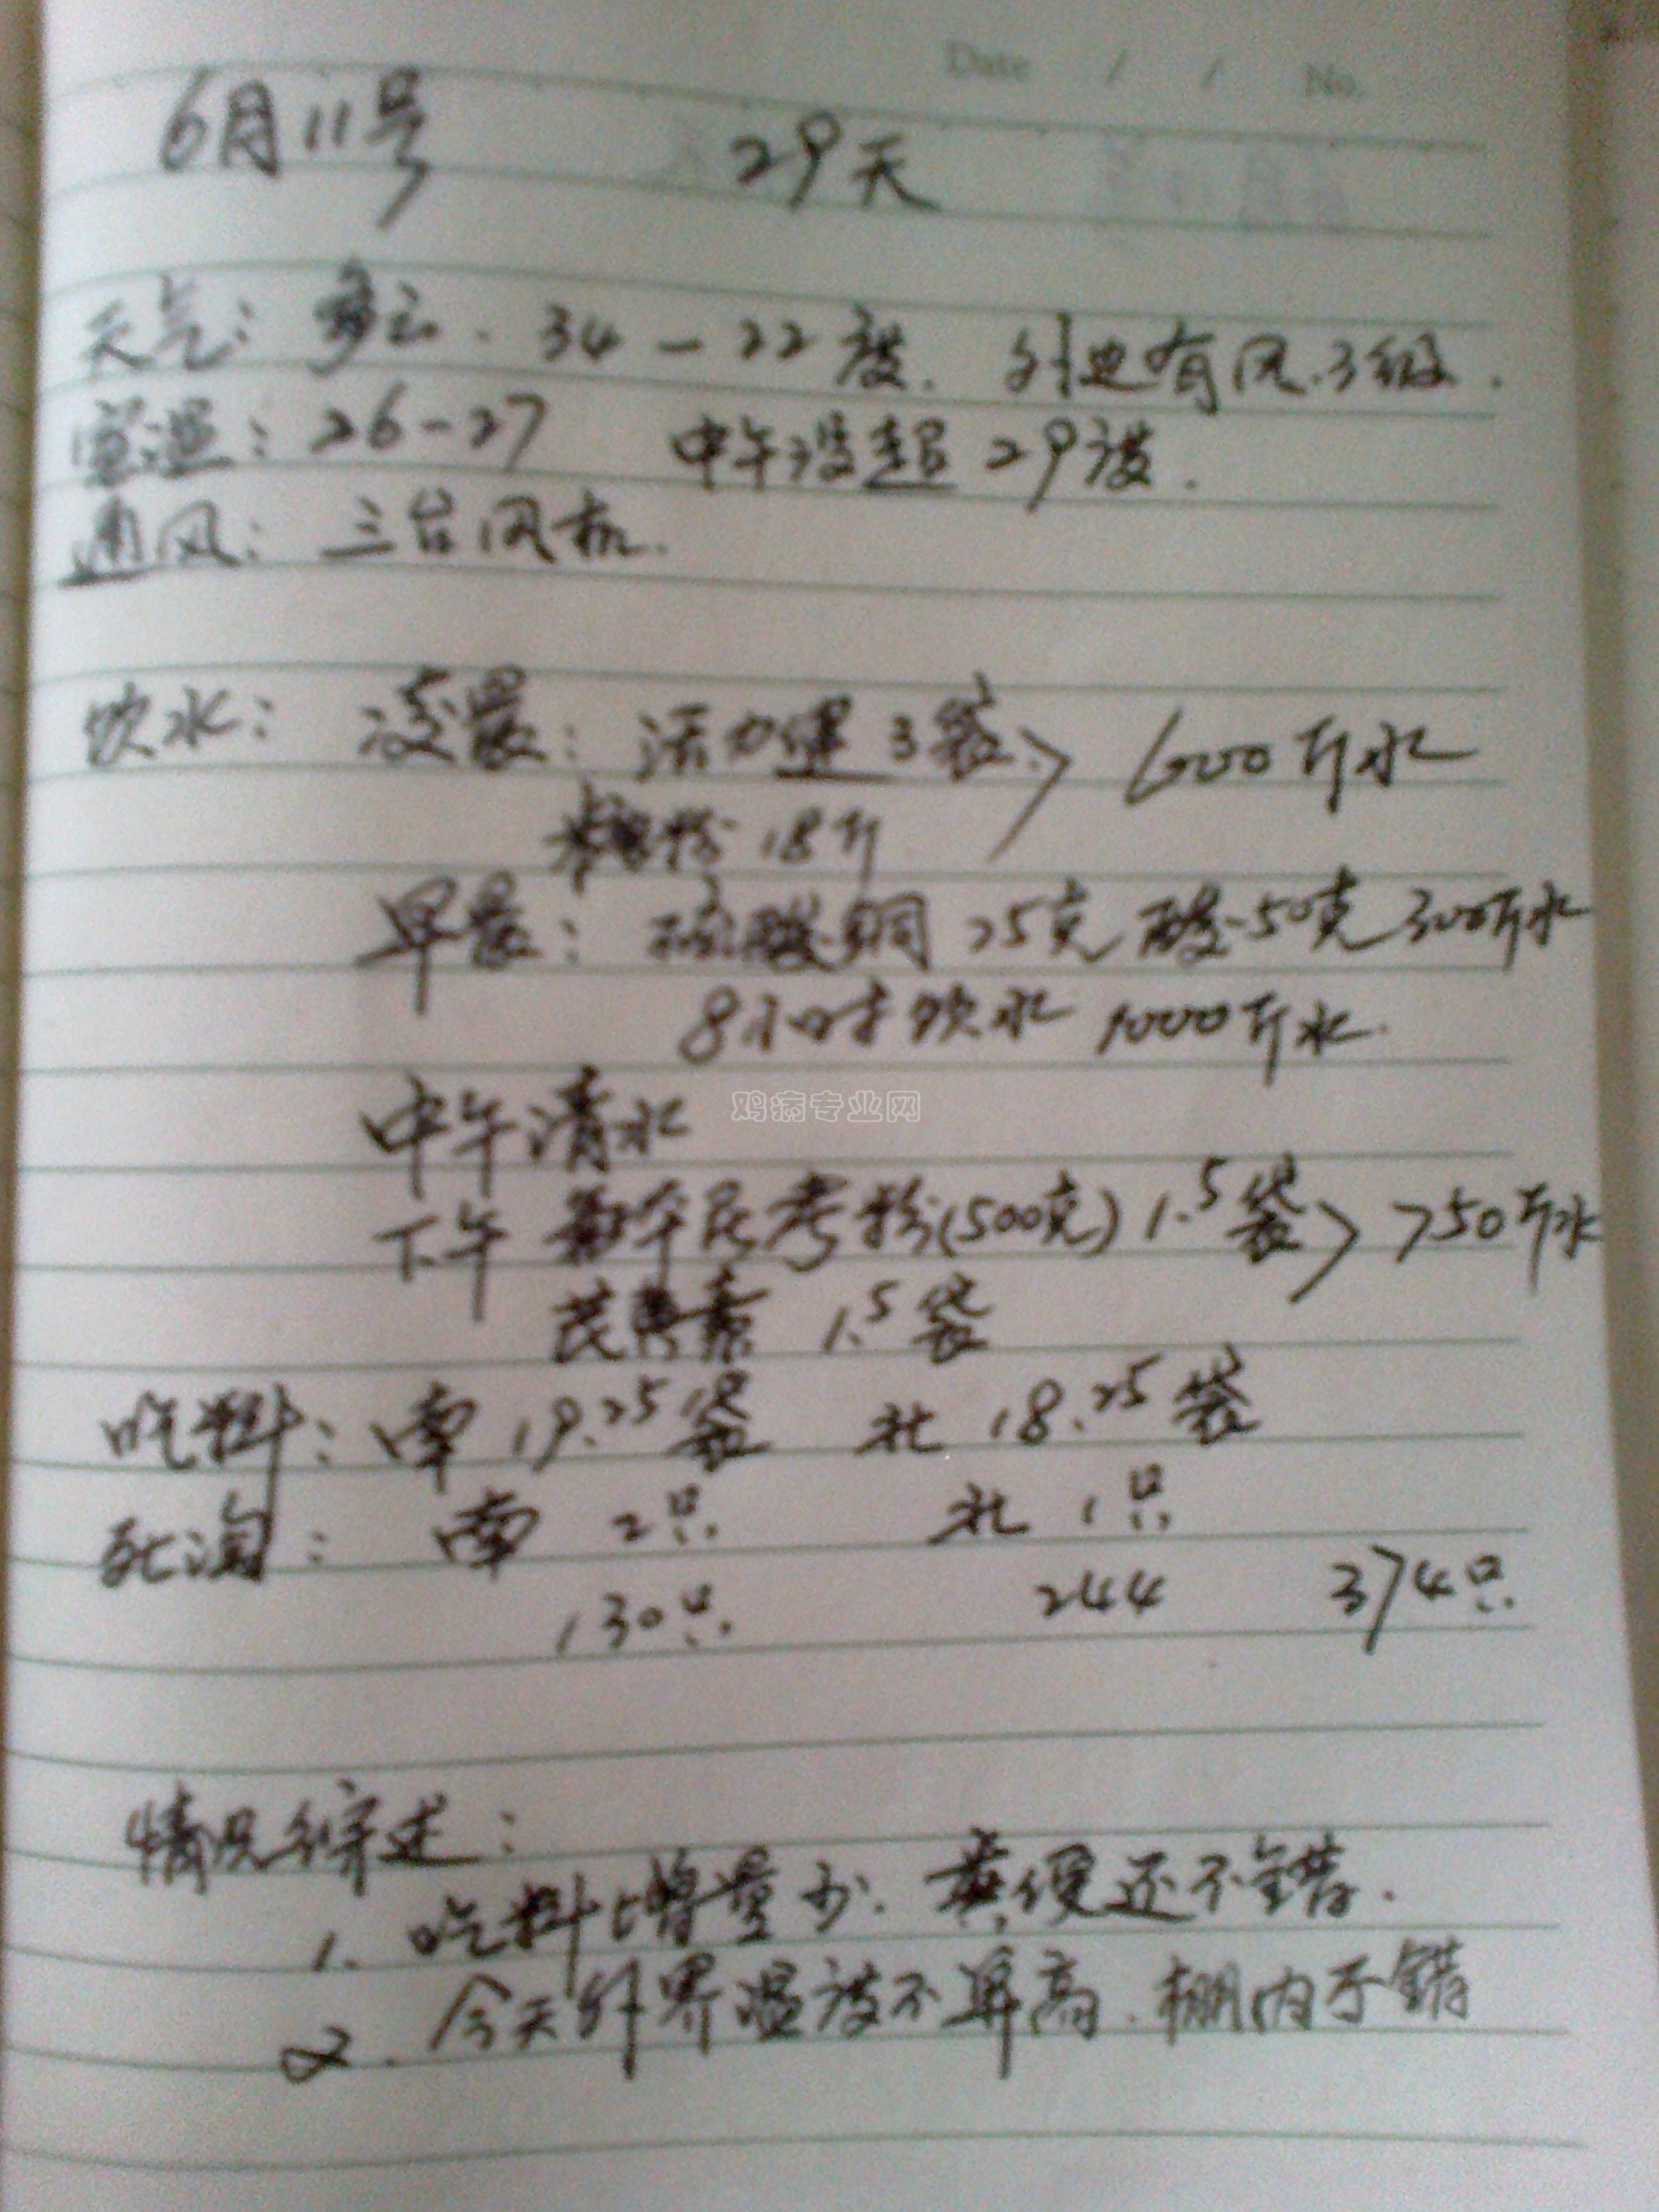 Date / / No.
6月11号 29天
天气: 多云. 34-22度. 外边有风.3级.
室温: 26-27 中午没超29度.
通风: 三台风机.
饮水: 凌晨: 活力健3袋> 600斤水
粉18斤
早晨: 硫酸铜 25克 酸50克 300斤水
8小时饮水 1000斤水.
中午清水
鸡病专业网
下午 考粉(500克) 1.5袋> 750斤水
芪 素 1.5袋
吃料: 南 19.25袋 北 18.25袋
死淘: 南 2只 北 1只
130只 244 374只
情况综述:
1. 吃料增量少. 粪便还不错.
2. 今天外界温度不算高. 棚内不错